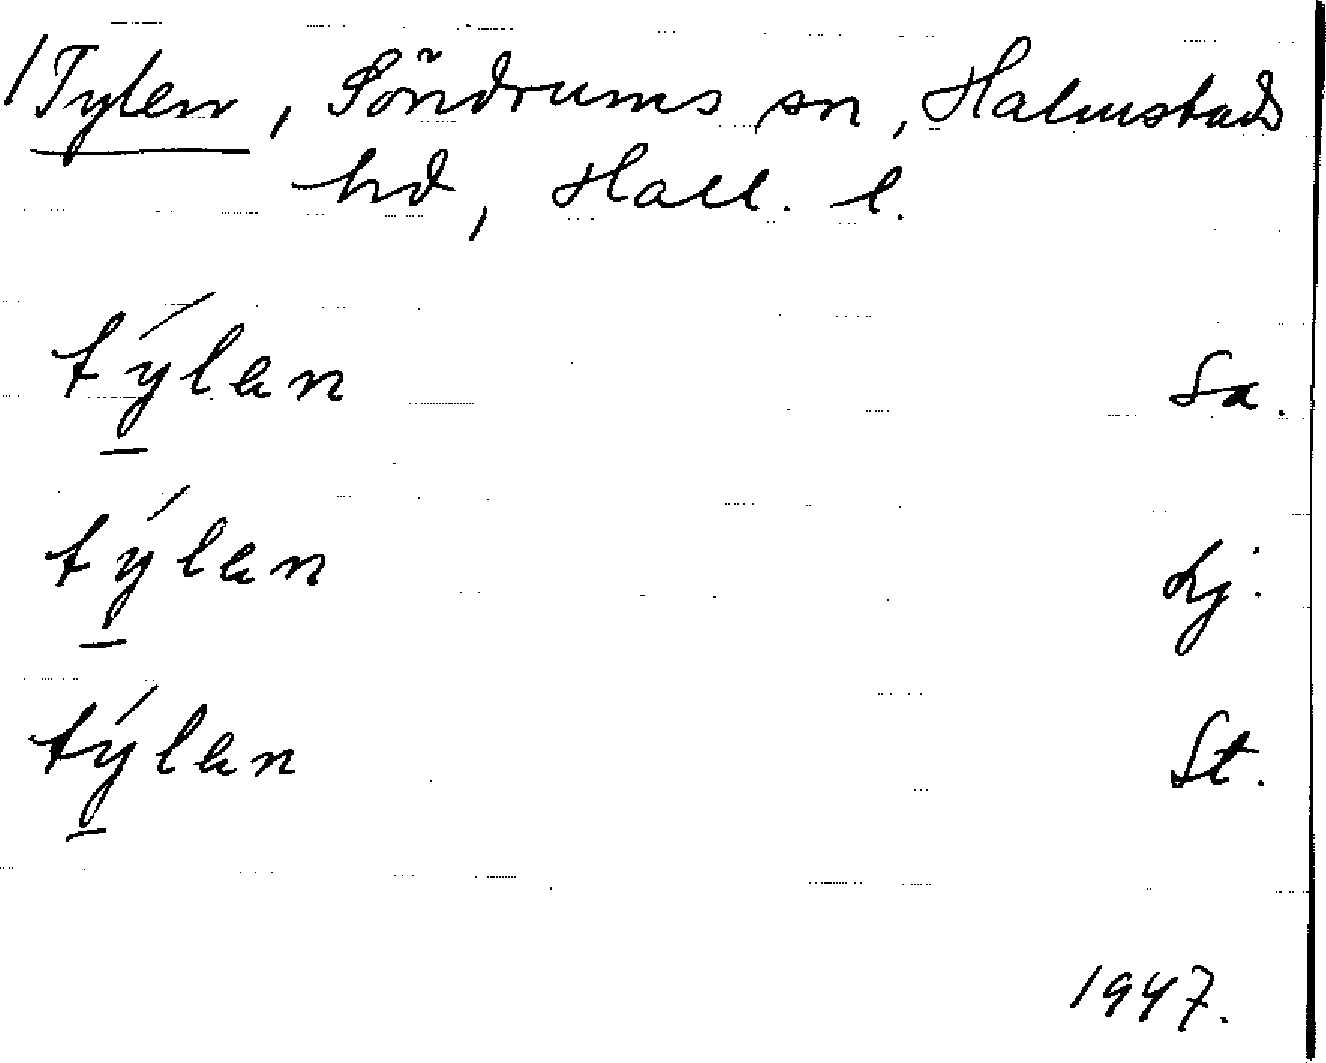 /Tylen, Söndrums sn, Halmstads
hd, Hall. l.
týlen Sa.
týlen Lj.
týlen St.
1947.